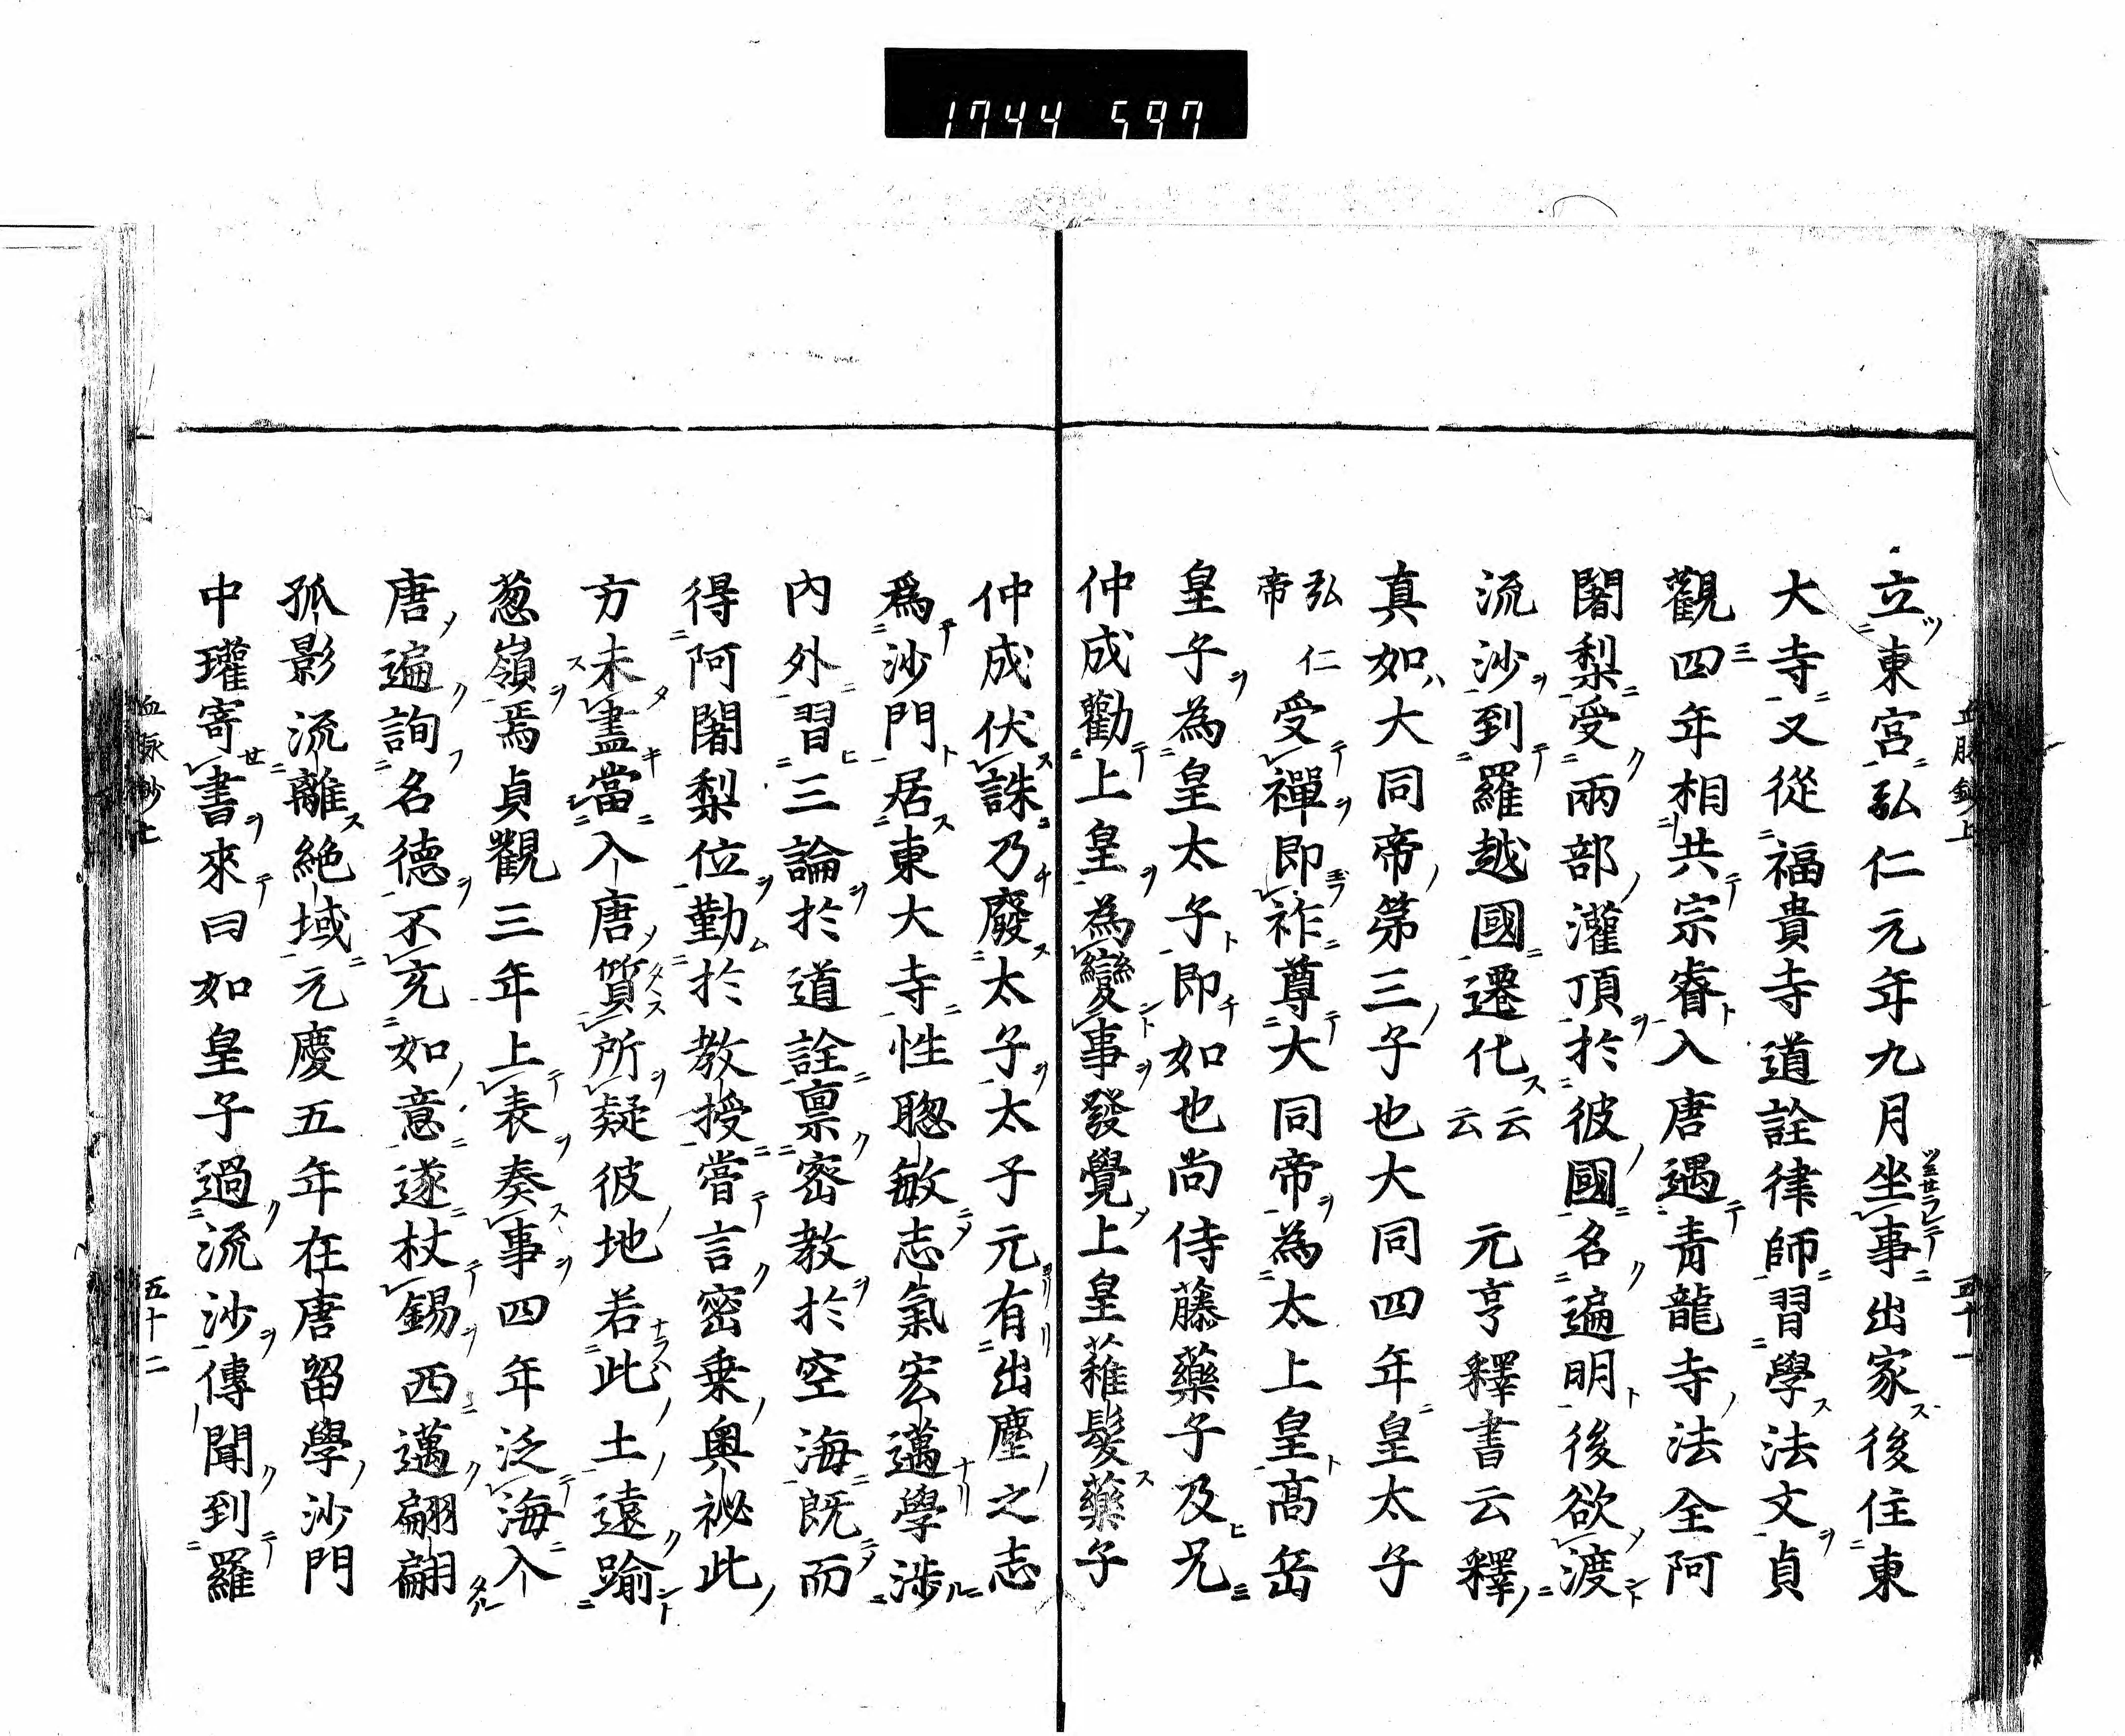 1744 597
立東宮弘仁元年九月坐事出家後住東
大寺又從福貴寺道詮律師習學法文貞
觀四年相共宗睿入唐遇青龍寺法全阿
闍梨受兩部灌頂於彼國名遍明後欲渡
流沙到羅越國遷化云云 元亨釋書云釋
真如大同帝第三子也大同四年皇太子
弘仁帝受禪即祚尊大同帝為太上皇高岳
皇子為皇太子即如也尚侍藤藥子及兄
仲成勸上皇為變事發覺上皇薙髮藥子
仲成伏誅乃廢太子太子元有出塵之志
爲沙門居東大寺性聰敏志氣宏邁學涉
内外習三論於道詮禀密教於空海既而
得阿闍梨位勤於教授嘗言密乗奥祕此
方未盡當入唐質所疑彼地若此土遠踰
葱嶺焉貞觀三年上表奏事四年泛海入
唐遍詢名德不充如意遂杖錫西邁翩翩
孤影流離絶域元慶五年在唐留學沙門
中瓘寄書來曰如皇子過流沙傳聞到羅
五十二